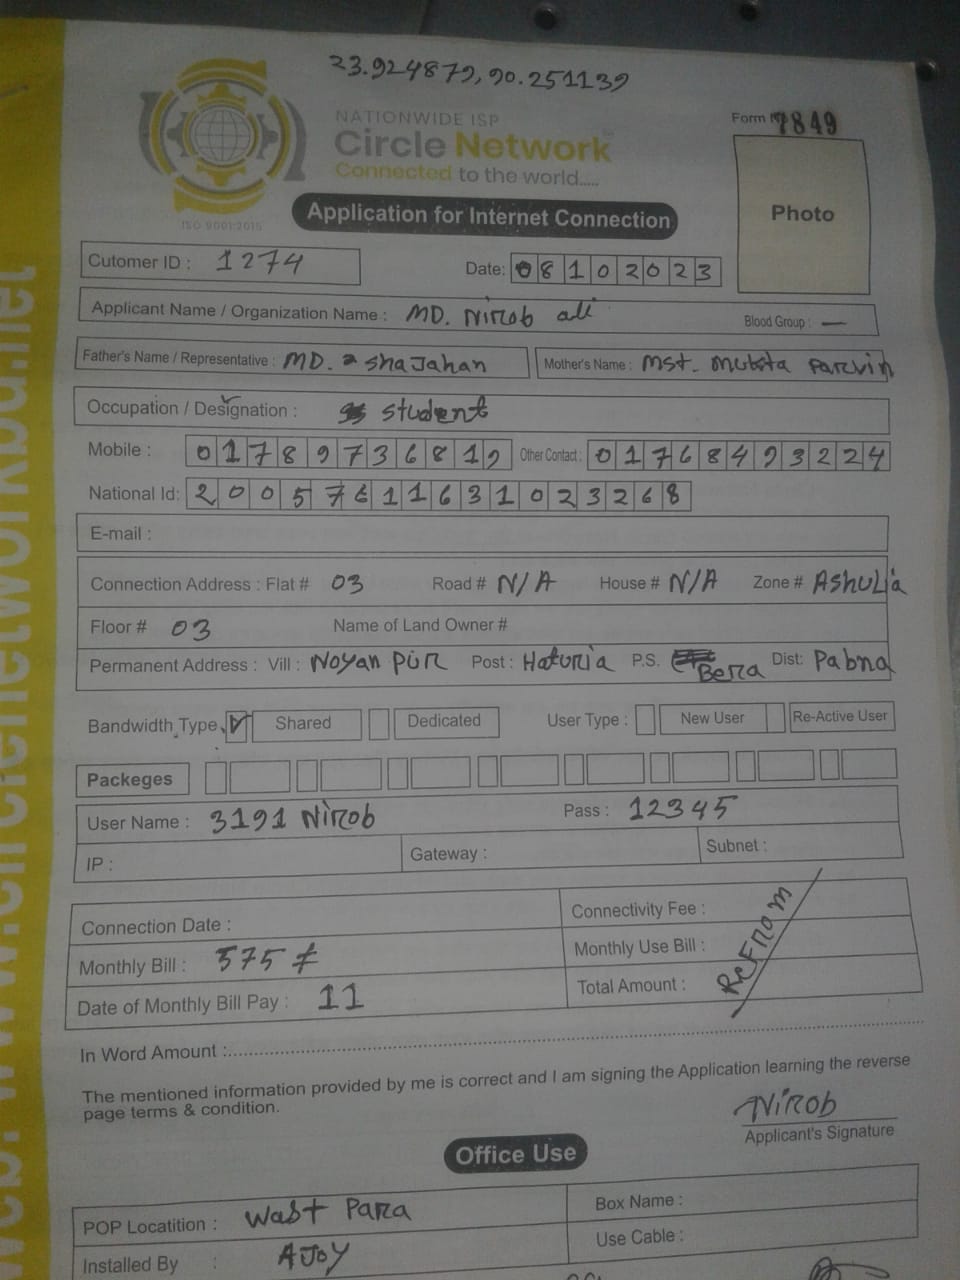 23.924879, 90.251139
NATIONWIDE ISP
Circle Network
Connected to the world.....
ISO 9001:2015
Form 7849
Photo
Application for Internet Connection
Cutomer ID : 1274
Date: 08102023
Applicant Name / Organization Name : MD. Nirob ali
Blood Group : —
Father's Name / Representative : MD. shaJahan
Mother's Name : Mst. Parvin
Occupation / Designation : student
Mobile : 01789736819 Other Contact : 01768493224
National Id: 20057611631023268
E-mail :
Connection Address : Flat # 03 Road # N/A House # N/A Zone # AShuLia
Floor # 03 Name of Land Owner #
Permanent Address : Vill : Noyan pur Post : Haturia P.S. Bera Dist: Pabna
Bandwidth Type Shared Dedicated User Type : New User Re-Active User
Packeges
User Name : 3191 Nirob Pass : 12345
IP : Gateway : Subnet :
Connection Date : Connectivity Fee :
Monthly Bill : 575 Monthly Use Bill :
Date of Monthly Bill Pay : 11 Total Amount :
ReFrom
In Word Amount :
The mentioned information provided by me is correct and I am signing the Application learning the reverse
page terms & condition.
Nirob
Applicant's Signature
Office Use
POP Locatition : Wast Para Box Name :
Installed By : AJoy Use Cable :